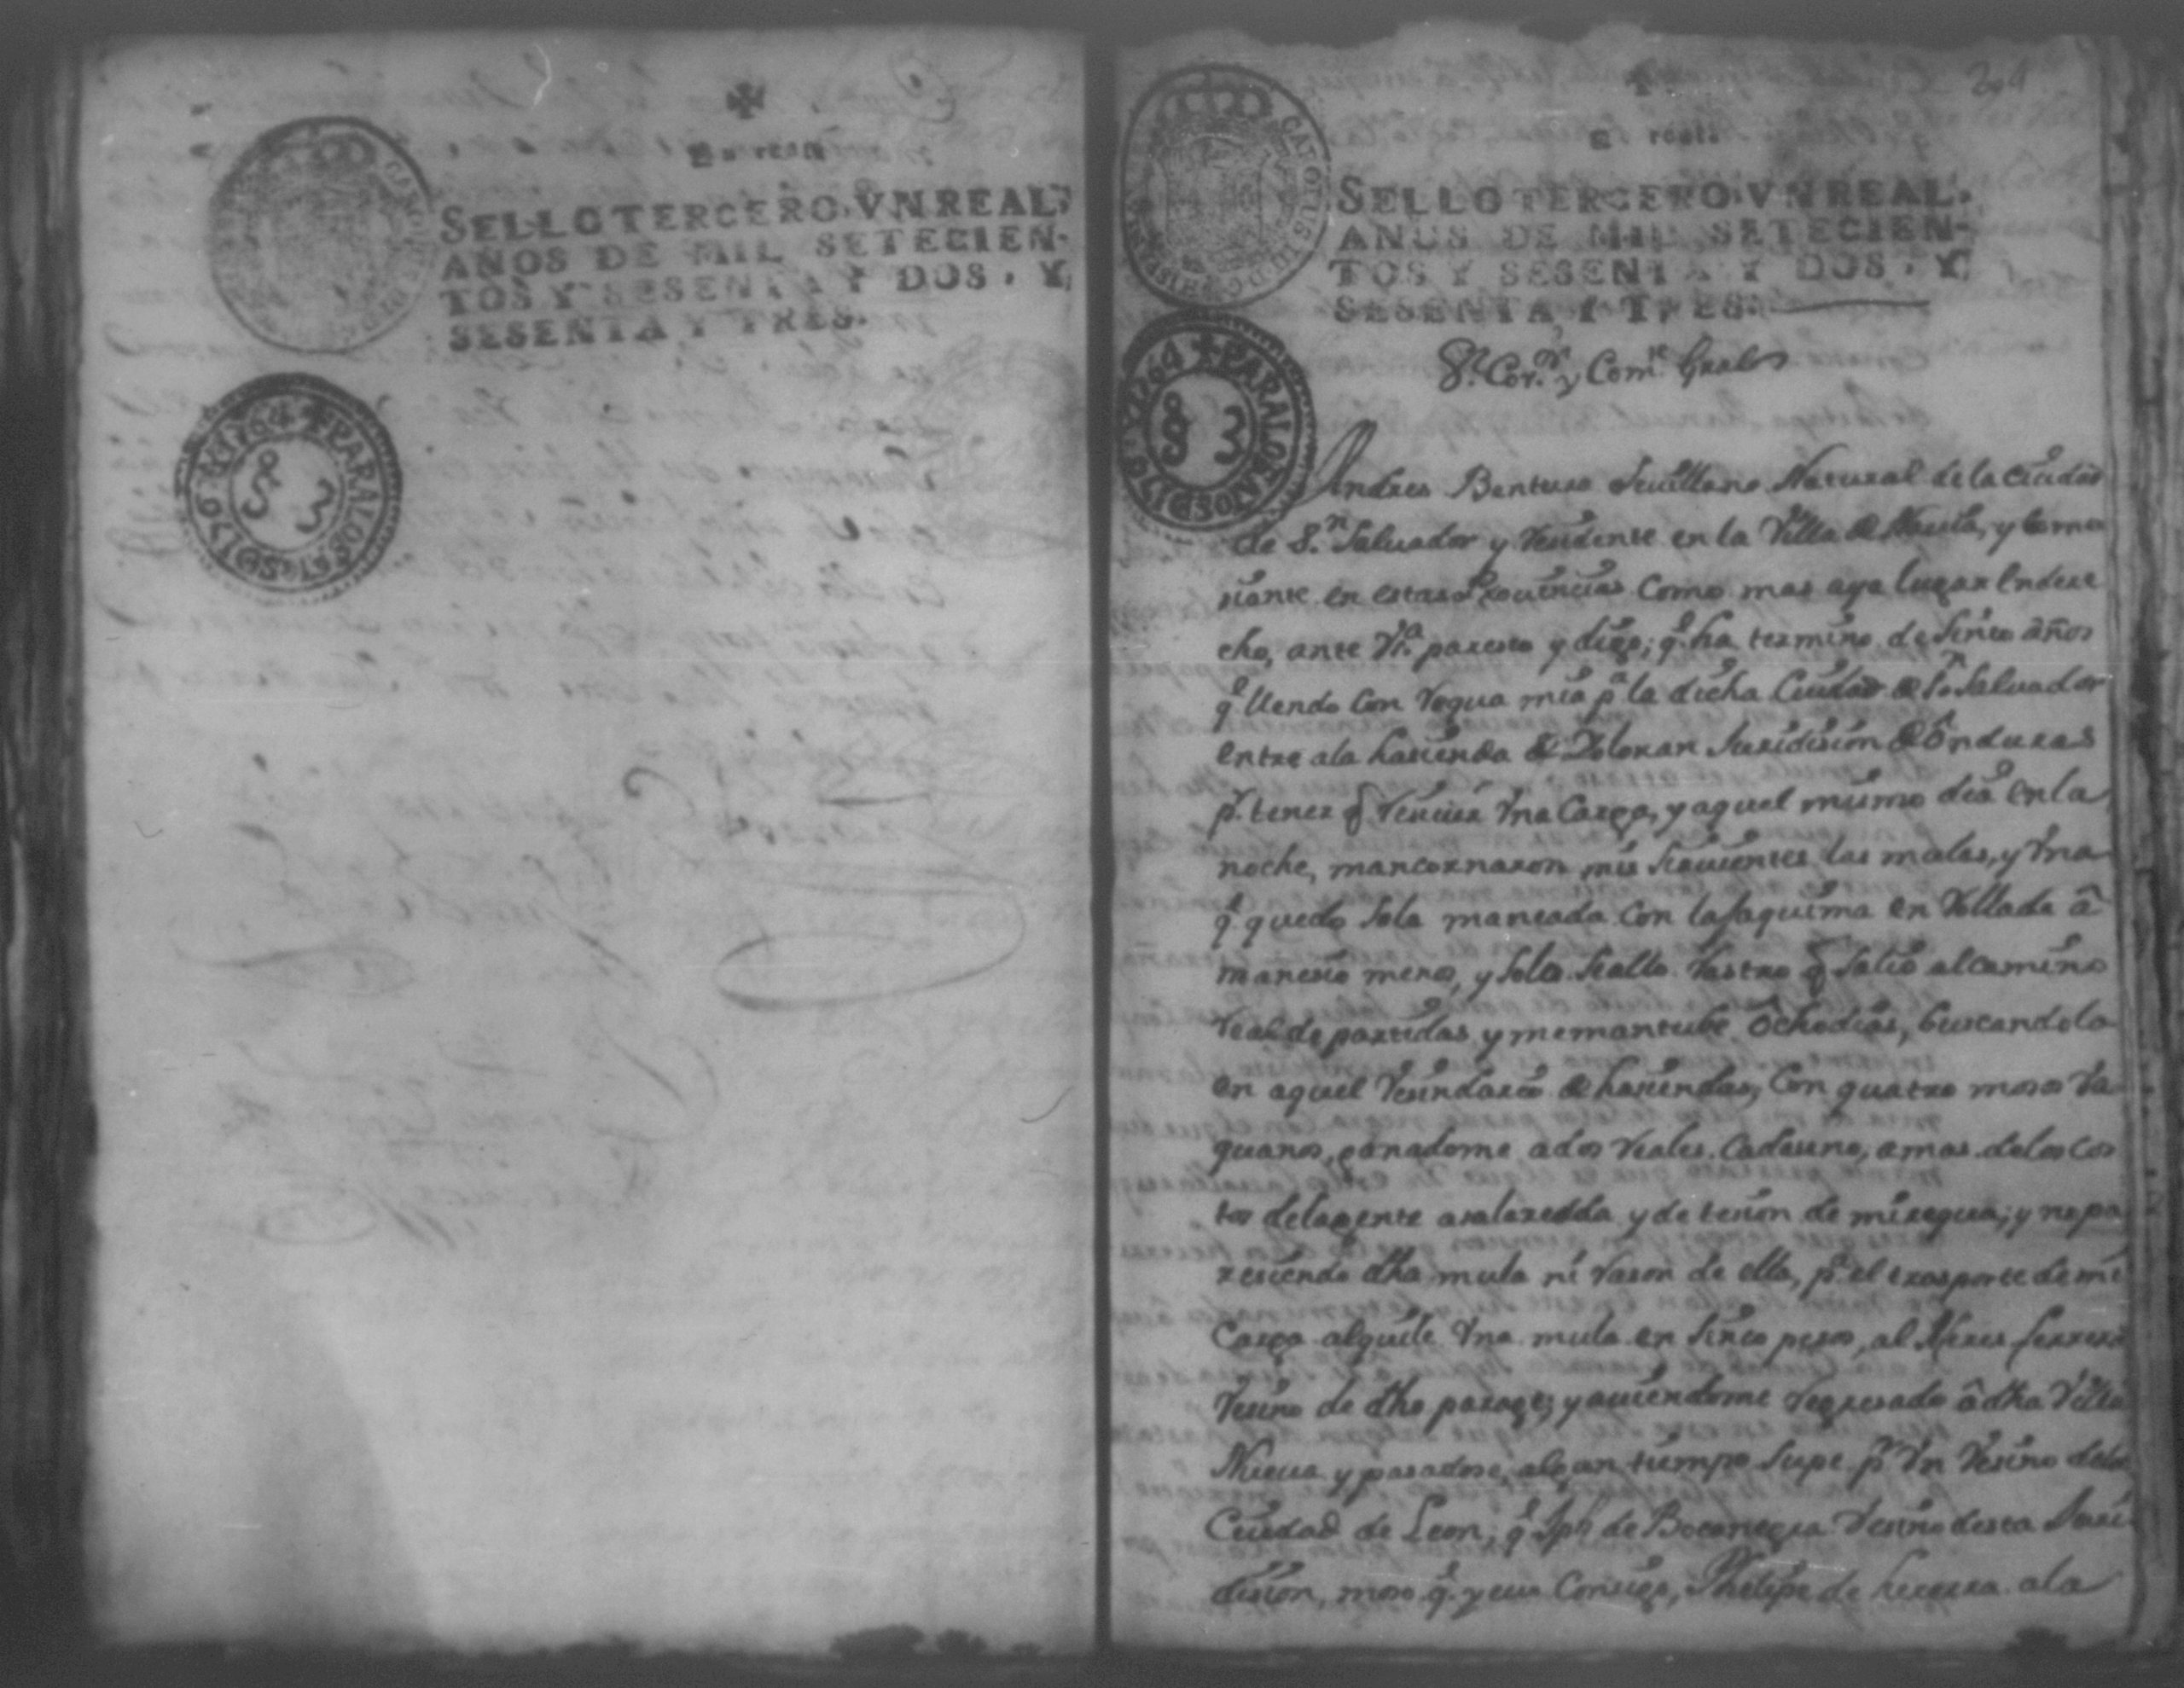 Un real
SELLO TERCERO, VN REAL,
AÑOS DE MIL SETECIEN-
TOS Y SESENTA Y DOS, Y
SESENTA Y TRES.
PARA LOS AÑOS D 1763 Y 1764
S 3
204
real
SELLO TERCERO, VN REAL,
AÑOS DE MIL SETECIEN-
TOS Y SESENTA Y DOS, Y
SESENTA Y TRES.
S.r Cor.or y Com.te Gral
Andres Bentura Seuillano Natural de la Ciudad
de S.n Saluador y Residente en la Villa de Nueua, y Comer
siante en estas Prouincias Como mas aya lugar en dere
cho, ante Vm.d paresco y digo; q.e ha termino de sinco años
q.e llendo Con Requa mia p.a la dicha Ciudad de S.n Saluador
entre a la hasienda de Joloran Juridision de Onduras
p.r tener q.e Resiuir Vna Carga, y aquel mismo dia en la
noche, mancornaron mis siruientes las mulas, y Vna
q.e quedo sola maneada Con la Jaquima en Rollada â
manesio menos, y solo se allo Rastro q.e salio al camino
Real de partidas y me mantube ôcho dias, buscandola
en aquel Vesindario de hasiendas, Con quatro mosos Va
queanos, ganadome a dos Reales Cada uno, a mas de los Cos
tos de la gente asalareada y detesion de mi requa; y no pa
resiendo dha mula ni Rason de ella, p.a el trasporte de mi
Carga alquile Vna mula en Sinco pesos, al Alferes ferrera
Vesino de dho parage; y auiendome Regresado â dha Villa
Nueua y pasadose algun tiempo Supe p.r Vn Vesino de la
Ciudad de Leon, q.e Jph de Bocanegra Vesino desta Juri
dision, moso q.e yeua Consigo, Phelipe de herrera a la